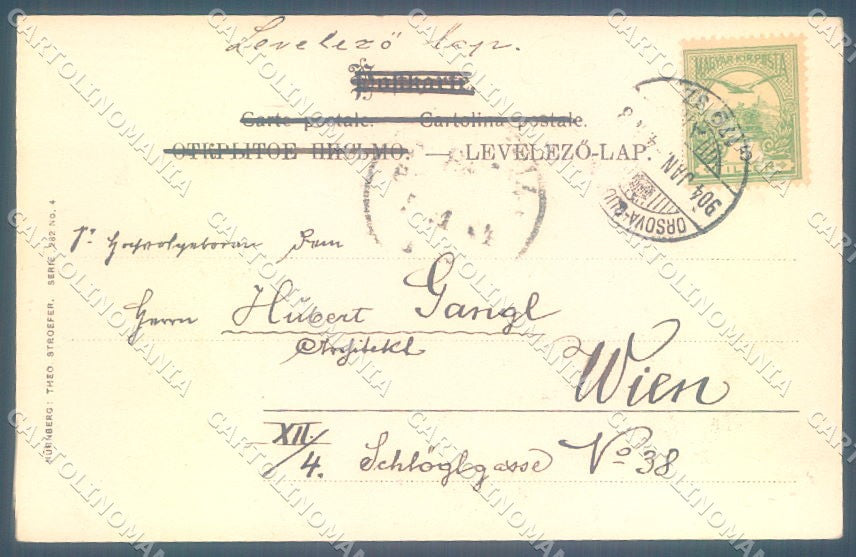 Levelező lap.
Postkarte
Carte postale. Cartolina postale.
ОТКРЫТОЕ ПИСЬМО. — LEVELEZŐ-LAP.
MAGYAR·KIR·POSTA
904 JAN
ORSOVA
Sr Hochwolgeboren Dem
Herrn Hubert Gangl
Architekt
Wien
XII./4. Schlöglgasse No 38
NÜRNBERG: THEO. STROEFER. SERIE 282 No. 4
CARTOLINOMANIA